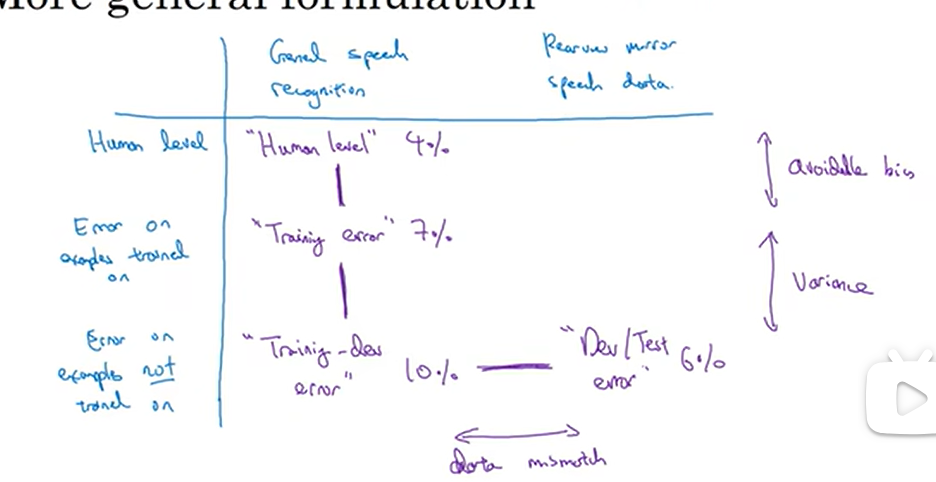 More general formulation
General speech
recognition
Rearview mirror
speech data.
Human level
"Human level" 4%
avoidable bias
Error on
examples trained
on
"Training error" 7%
Variance
Error on
examples not
trained on
"Training-dev
error"
10%
"Dev/Test
error"
6%
data mismatch